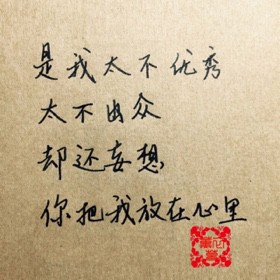 是我太不优秀
太不出众
却还妄想,
你把我放在心里